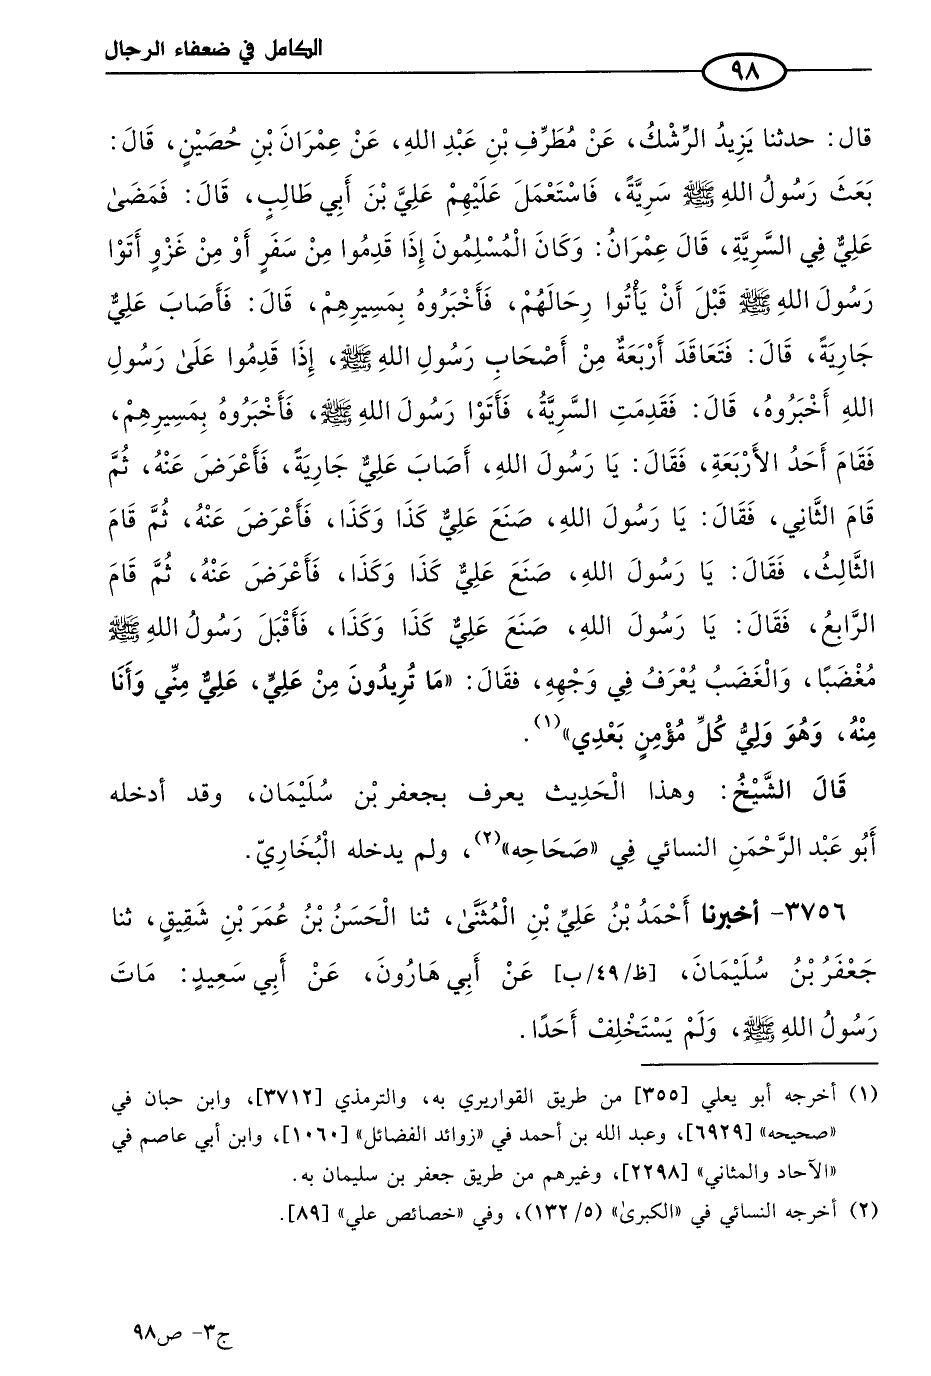 الكامل في ضعفاء الرجال
٩٨
قال: حدثنا يَزِيدُ الرِّشْكُ، عَنْ مُطَرِّفِ بْنِ عَبْدِ اللهِ، عَنْ عِمْرَانَ بْنِ حُصَيْنٍ، قَالَ:
بَعَثَ رَسُولُ اللهِ ﷺ سَرِيَّةً، فَاسْتَعْمَلَ عَلَيْهِمْ عَلِيَّ بْنَ أَبِي طَالِبٍ، قَالَ: فَمَضَىٰ
عَلِيٌّ فِي السَّرِيَّةِ، قَالَ عِمْرَانُ: وَكَانَ الْمُسْلِمُونَ إِذَا قَدِمُوا مِنْ سَفَرٍ أَوْ مِنْ غَزْوٍ أَتَوْا
رَسُولَ اللهِ ﷺ قَبْلَ أَنْ يَأْتُوا رِحَالَهُمْ، فَأَخْبَرُوهُ بِمَسِيرِهِمْ، قَالَ: فَأَصَابَ عَلِيٌّ
جَارِيَةً، قَالَ: فَتَعَاقَدَ أَرْبَعَةٌ مِنْ أَصْحَابِ رَسُولِ اللهِ ﷺ، إِذَا قَدِمُوا عَلَىٰ رَسُولِ
اللهِ أَخْبَرُوهُ، قَالَ: فَقَدِمَتِ السَّرِيَّةُ، فَأَتَوْا رَسُولَ اللهِ ﷺ، فَأَخْبَرُوهُ بِمَسِيرِهِمْ،
فَقَامَ أَحَدُ الأَرْبَعَةِ، فَقَالَ: يَا رَسُولَ اللهِ، أَصَابَ عَلِيٌّ جَارِيَةً، فَأَعْرَضَ عَنْهُ، ثُمَّ
قَامَ الثَّانِي، فَقَالَ: يَا رَسُولَ اللهِ، صَنَعَ عَلِيٌّ كَذَا وَكَذَا، فَأَعْرَضَ عَنْهُ، ثُمَّ قَامَ
الثَّالِثُ، فَقَالَ: يَا رَسُولَ اللهِ، صَنَعَ عَلِيٌّ كَذَا وَكَذَا، فَأَعْرَضَ عَنْهُ، ثُمَّ قَامَ
الرَّابِعُ، فَقَالَ: يَا رَسُولَ اللهِ، صَنَعَ عَلِيٌّ كَذَا وَكَذَا، فَأَقْبَلَ رَسُولُ اللهِ ﷺ
مُغْضَبًا، وَالْغَضَبُ يُعْرَفُ فِي وَجْهِهِ، فقَالَ: «مَا تُرِيدُونَ مِنْ عَلِيٍّ، عَلِيٌّ مِنِّي وَأَنَا
مِنْهُ، وَهُوَ وَلِيُّ كُلِّ مُؤْمِنٍ بَعْدِي»(١).
قَالَ الشَّيْخُ: وهذا الْحَدِيث يعرف بجعفر بْن سُلَيْمَان، وقد أدخله
أَبُو عَبْد الرَّحْمَنِ النسائي فِي «صَحَاحِه»(٢)، ولم يدخله الْبُخَارِيّ.
٣٧٥٦- أخبرنا أَحْمَدُ بْنُ عَلِيِّ بْنِ الْمُثَنَّىٰ، ثنا الْحَسَنُ بْنُ عُمَرَ بْنِ شَقِيقٍ، ثنا
جَعْفَرُ بْنُ سُلَيْمَانَ، [ظ/٤٩/ب] عَنْ أَبِي هَارُونَ، عَنْ أَبِي سَعِيدٍ: مَاتَ
رَسُولُ اللهِ ﷺ، وَلَمْ يَسْتَخْلِفْ أَحَدًا.
(١) أخرجه أبو يعلي [٣٥٥] من طريق القواريري به، والترمذي [٣٧١٢]، وابن حبان في
«صحيحه» [٦٩٢٩]، وعبد الله بن أحمد في «زوائد الفضائل» [١٠٦٠]، وابن أبي عاصم في
«الآحاد والمثاني» [٢٢٩٨]، وغيرهم من طريق جعفر بن سليمان به.
(٢) أخرجه النسائي في «الكبرىٰ» (٥/ ١٣٢)، وفي «خصائص علي» [٨٩].
ج٣- ص٩٨